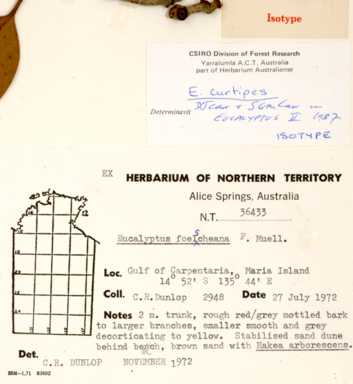 Isotype
CSIRO Division of Forest Research
Yarralumla A.C.T. Australia
part of Herbarium Australiense
E. curtipes
Determinavit D J Carr & S G M Carr in
EUCALYPTUS II 1987
ISOTYPE
EX HERBARIUM OF NORTHERN TERRITORY
Alice Springs, Australia
N.T. 36433
Eucalyptus foelscheana F. Muell.
Loc. Gulf of Carpentaria, Maria Island
14° 52' S 135° 44' E
Coll. C.R.Dunlop 2948 Date 27 July 1972
Notes 2 m. trunk, rough red/grey mottled bark
to larger branches, smaller smooth and grey
decorticating to yellow. Stabilised sand dune
behind beach, brown sand with Hakea arborescens.
Det. C.R. DUNLOP NOVEMBER 1972